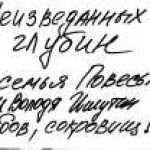 неизведанных
глубин
семья Повесь
и Володя Ишутин
бов, сокровищ